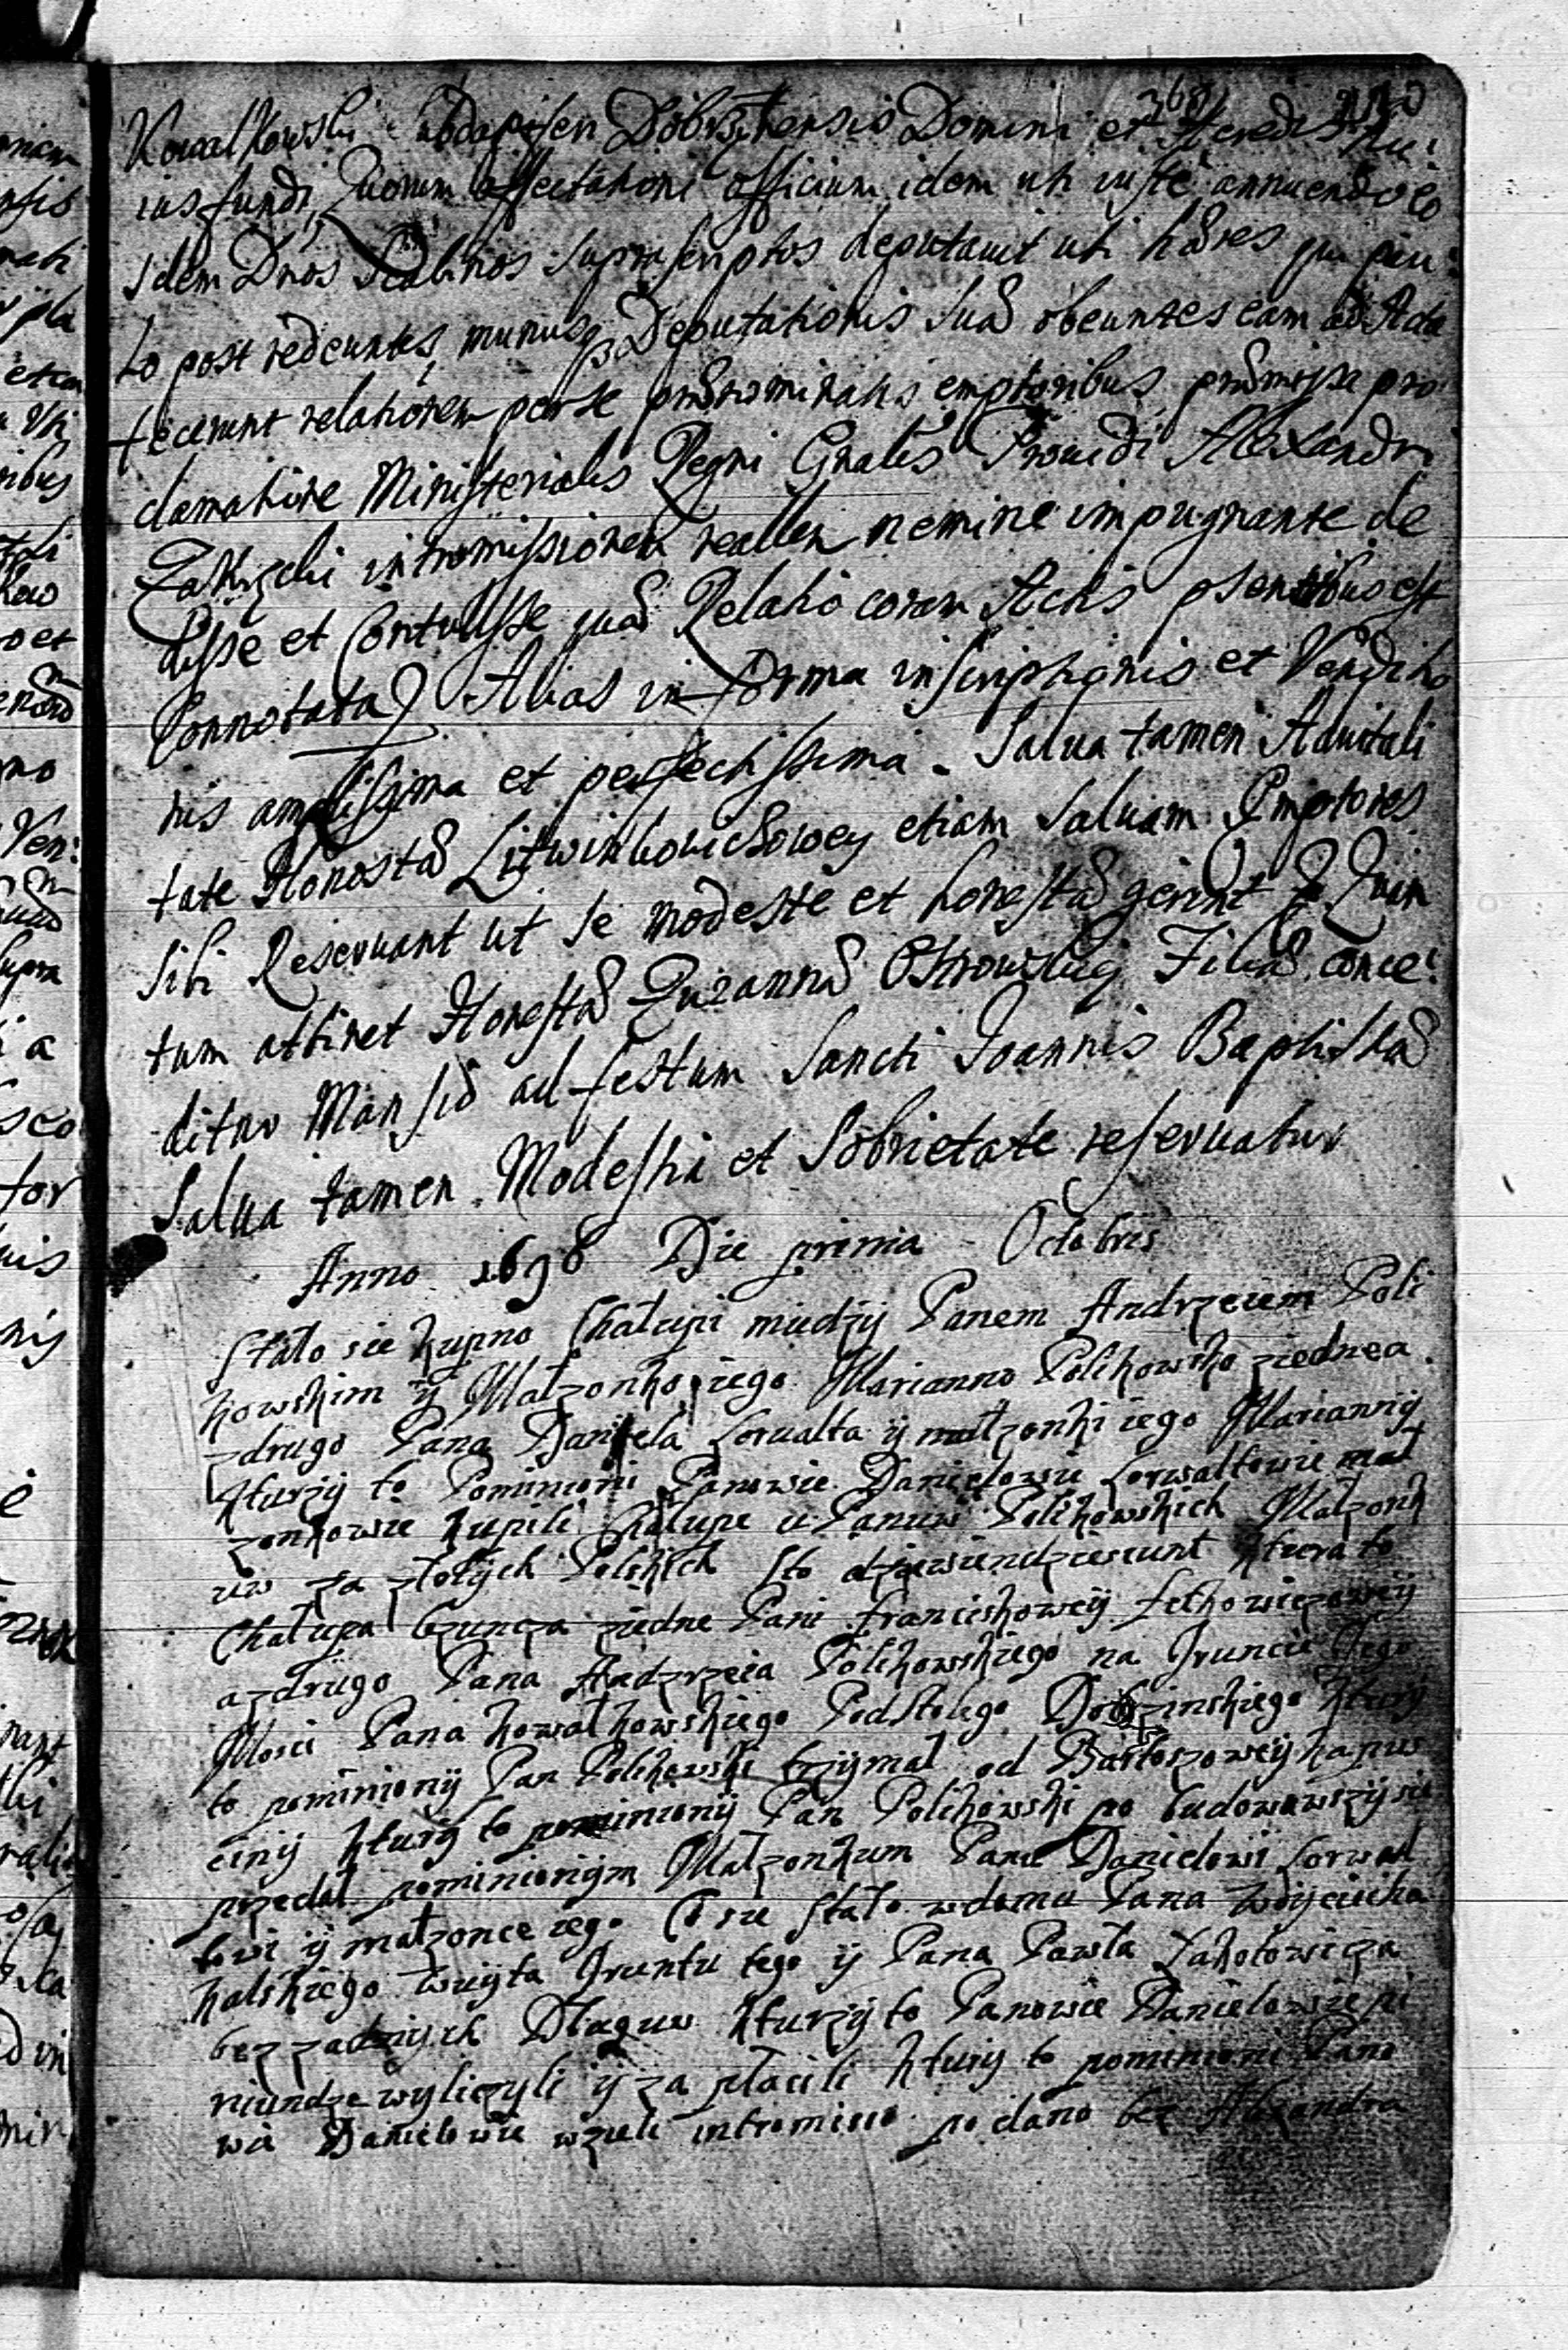 368
Kowalkowski Subdapiferi Dobrzinensis Domini et Hæredis hu:
ius fundi, Quorum affectationi officium idem uti iuste annuendo eo
Idem Dnos Scabinos supra scriptos deputavit uti hæres qui peru:
to post redeuntes, munusq Deputationis suæ obeuntes eam ad Acta
fecerunt relationem per se prænominatis emptoribus præmissa pro
clamatione Ministerialis Regni Gnalis Providi Alexandri
Zakrzchi intromissionem realem nemine impugnante de
disse et Contulisse quæ Relatio coram Actis psentibus est
Connotata Alias in forma inscriptionis et Venditio
nis amplissima et perfectissima. Salva tamen Advitali
tate Honestæ Litwinkowichowey etiam Salvam Emptores
sibi Reservant ut se modeste et honestæ gerent Quan
tum attinet Honestæ Zuzannæ Ostrowskiej Filiæ conce:
ditur Mansio ad festum Sancti Joannis Baptistæ
Salva tamen Modestia et Sobrietate reservatur
Anno 1698 Die prima Octobris
Stało sie kupno Chałupi miudzy Panem Andrzeiem Poli
kowskim ij Małzonko iego Marianno Polikowsko ziednea
zdrugo Pana Daniela Lorualta ij małzonki iego Mariannij
kturzij to Pominioni Panowie Danielowie Lorwaltowie mał
zonkowie kupili Chałupe u Panuw Polikowskich Małzonk
uw za złotych Polskich sto dziewiendziesiunt ktura to
Chałupa lezunca ziedne Pani franciskoweij Letkowiczoweij
azdrugo Pana Andrzreia Polikowskiego na Gruncie Jego
Mosci Pana kowalkowskiego Podstolego Dobrzinskiego kturij
to pominionij Pan Polikowski trzijmał od Bartoszoweij kapus
cinij kturij to pominionij Pan Polikowski po budowawszij sie
przedał pominionijm Małzonkum Panu Danielowi Lorwal
towi ij małzonce iego Co sie stało wdomu Pana Woijciecha
kalskiego wuijta Gruntu tego ij Pana Pawła Zakotowicza
bez zadnijch Długuw kturzij to Panowie Danielowie pi
niundze wyliczyli ij za płacili kturij to pominioni Pano
wie Danielowie wzieli intromisio po dano bez Alexandra